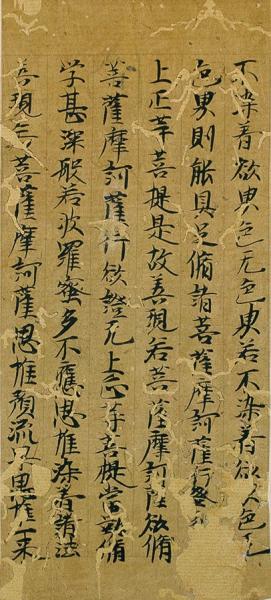 不染着欲界色无色界若不染着欲界色无
色界則能具足脩諸菩薩摩訶薩行證
上正等菩提是故善現若菩薩摩訶薩欲脩
菩薩摩訶薩行欲證无上正等菩提當勤脩
学甚深般若波羅蜜多不應思惟染着諸法
善現言菩薩摩訶薩思惟預流不思惟一来